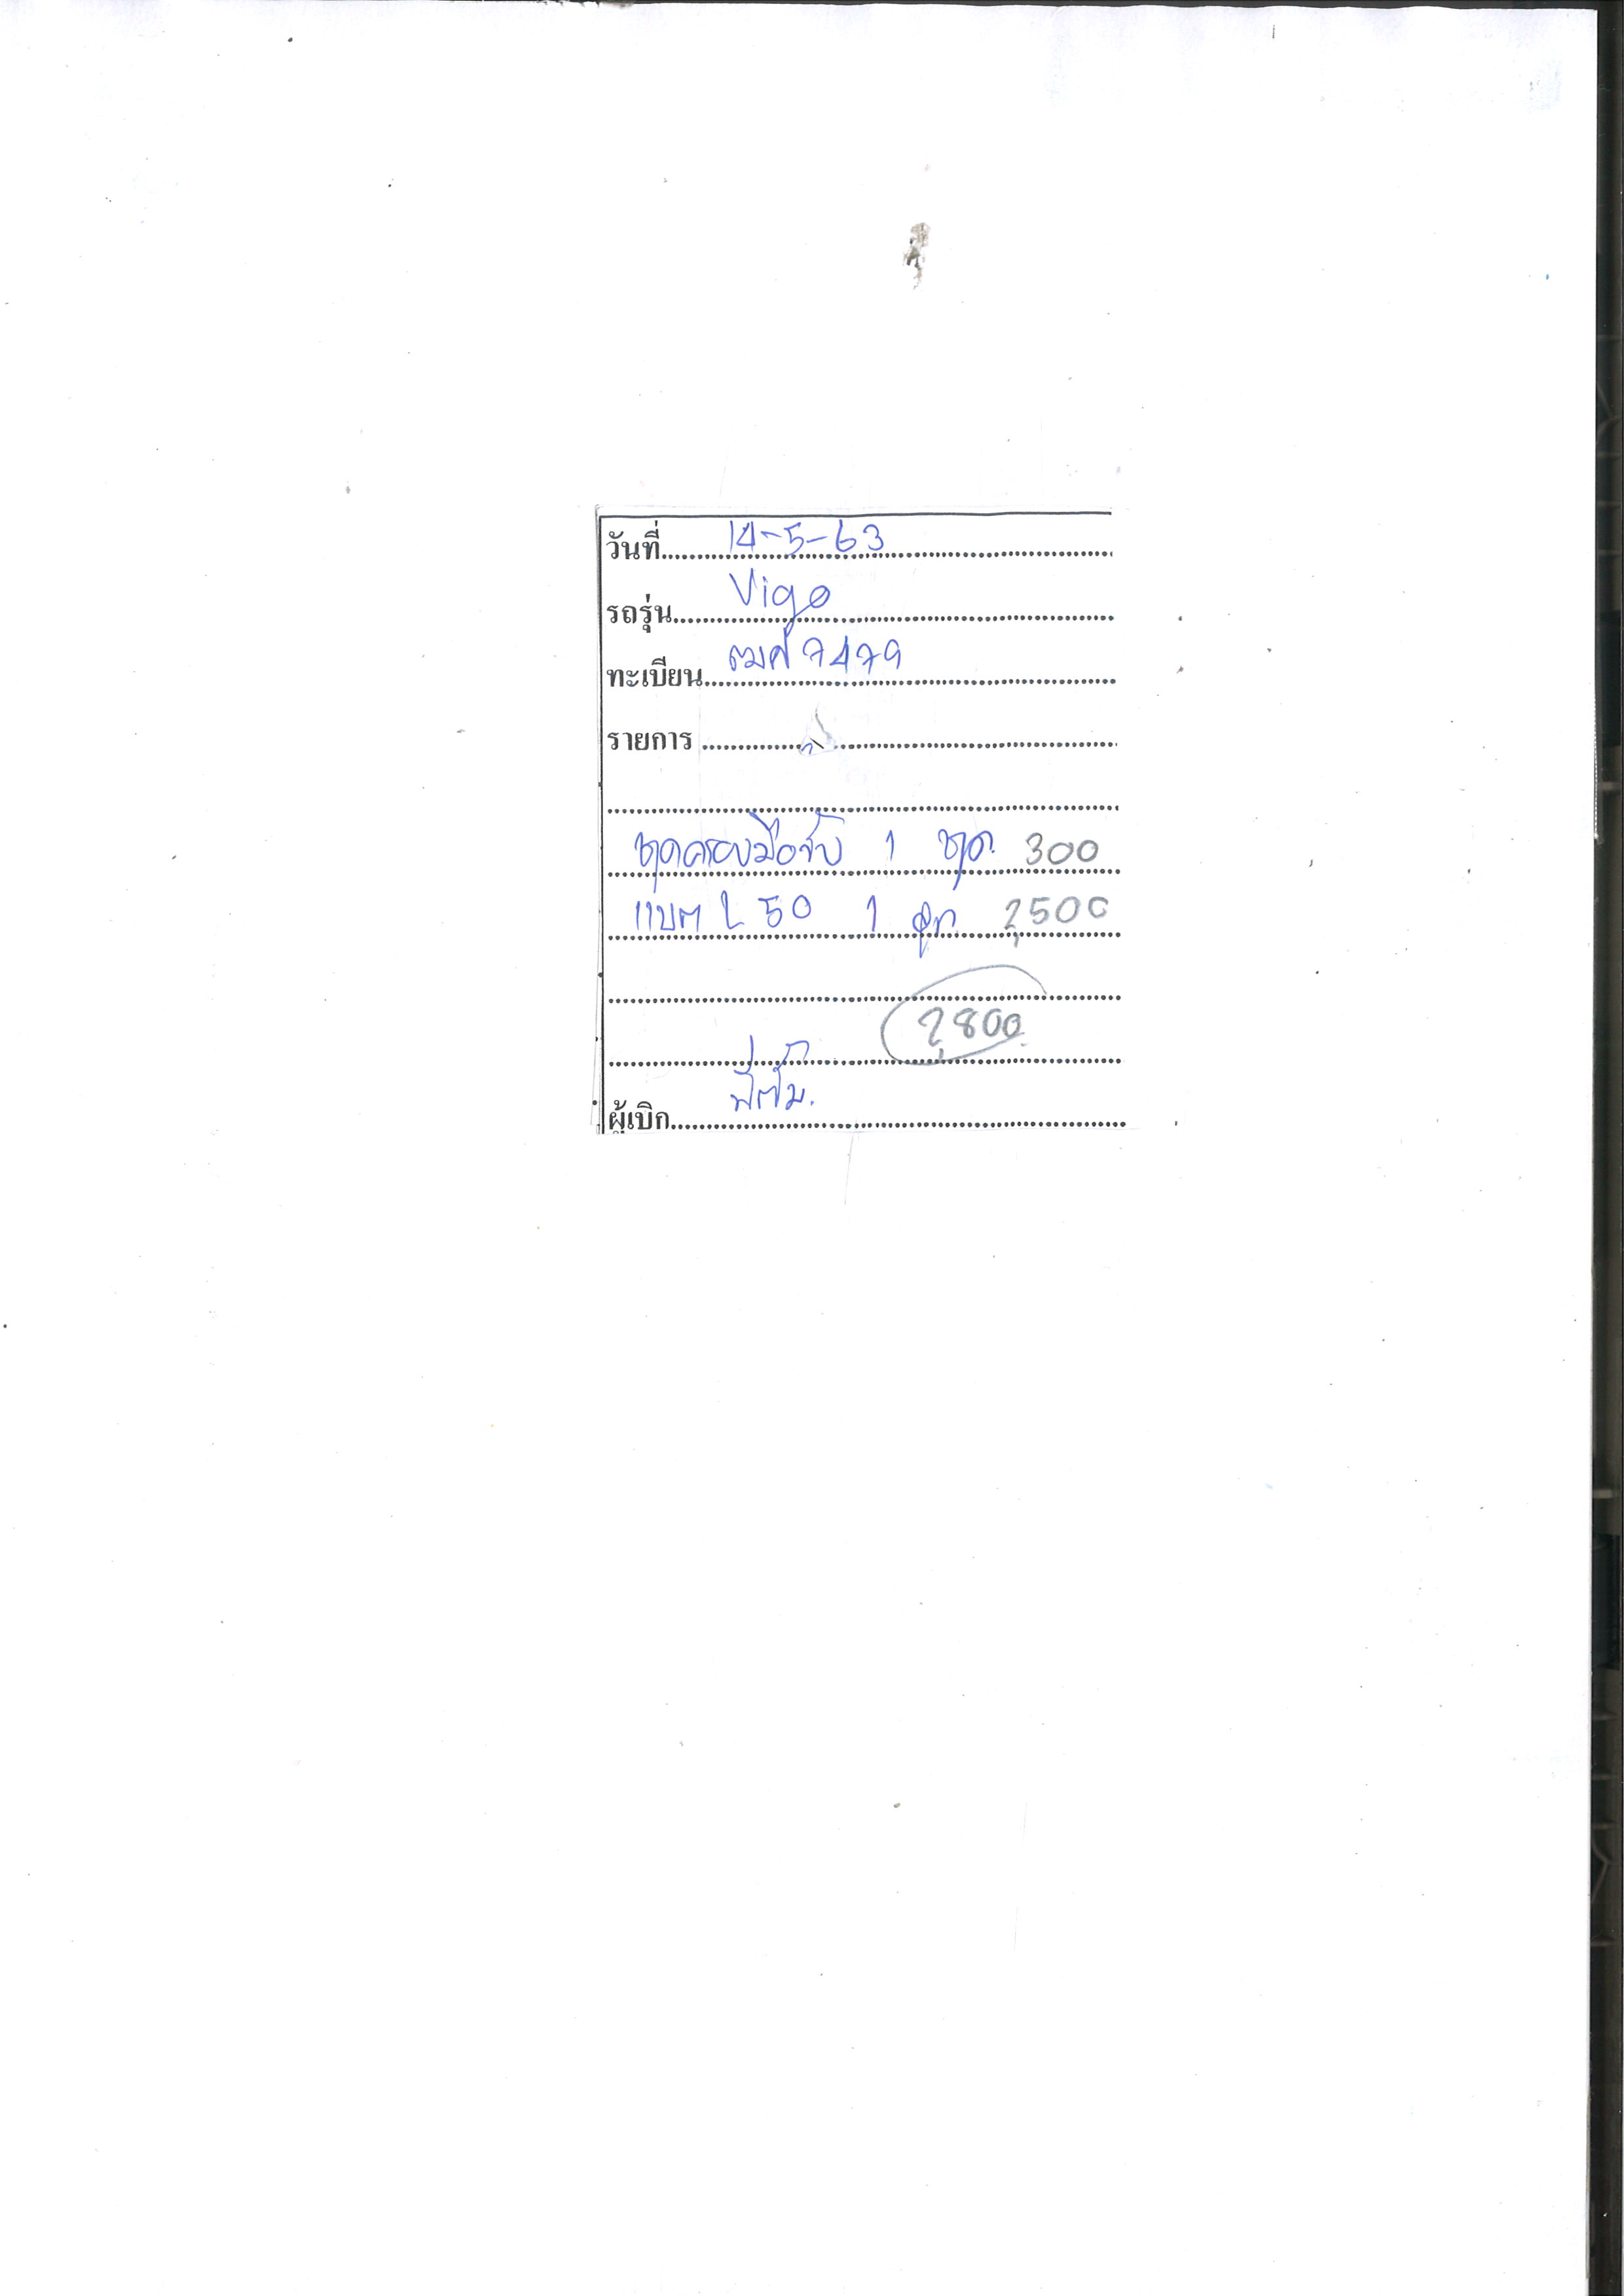 วันที่ 14-5-63
รถรุ่น Vigo
ทะเบียน ฒศ 7479
รายการ
ชุดครอบมือจับ 1 ชุด 300
แบต L 50 1 ลูก 2,500
2,800
ผู้เบิก พี่ตั้ม.